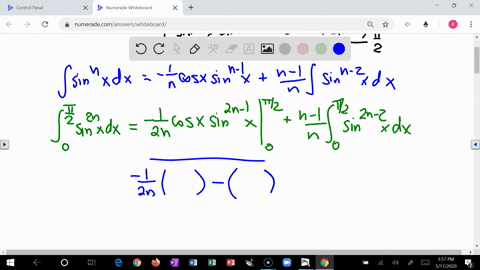 Control Panel
Numerade Whiteboard
numerade.com/answers/whiteboard/
2
∫sinⁿxdx = -1/n cosx sinⁿ⁻¹x + n-1/n ∫sinⁿ⁻²x dx
∫₀^(π/2) sin²ⁿxdx = 1/2n cosx sin²ⁿ⁻¹x |₀^(π/2) + n-1/n ∫₀^(π/2) sin²ⁿ⁻²x dx
-1/2n ( ) - ( )
3:52 PM
5/17/2020